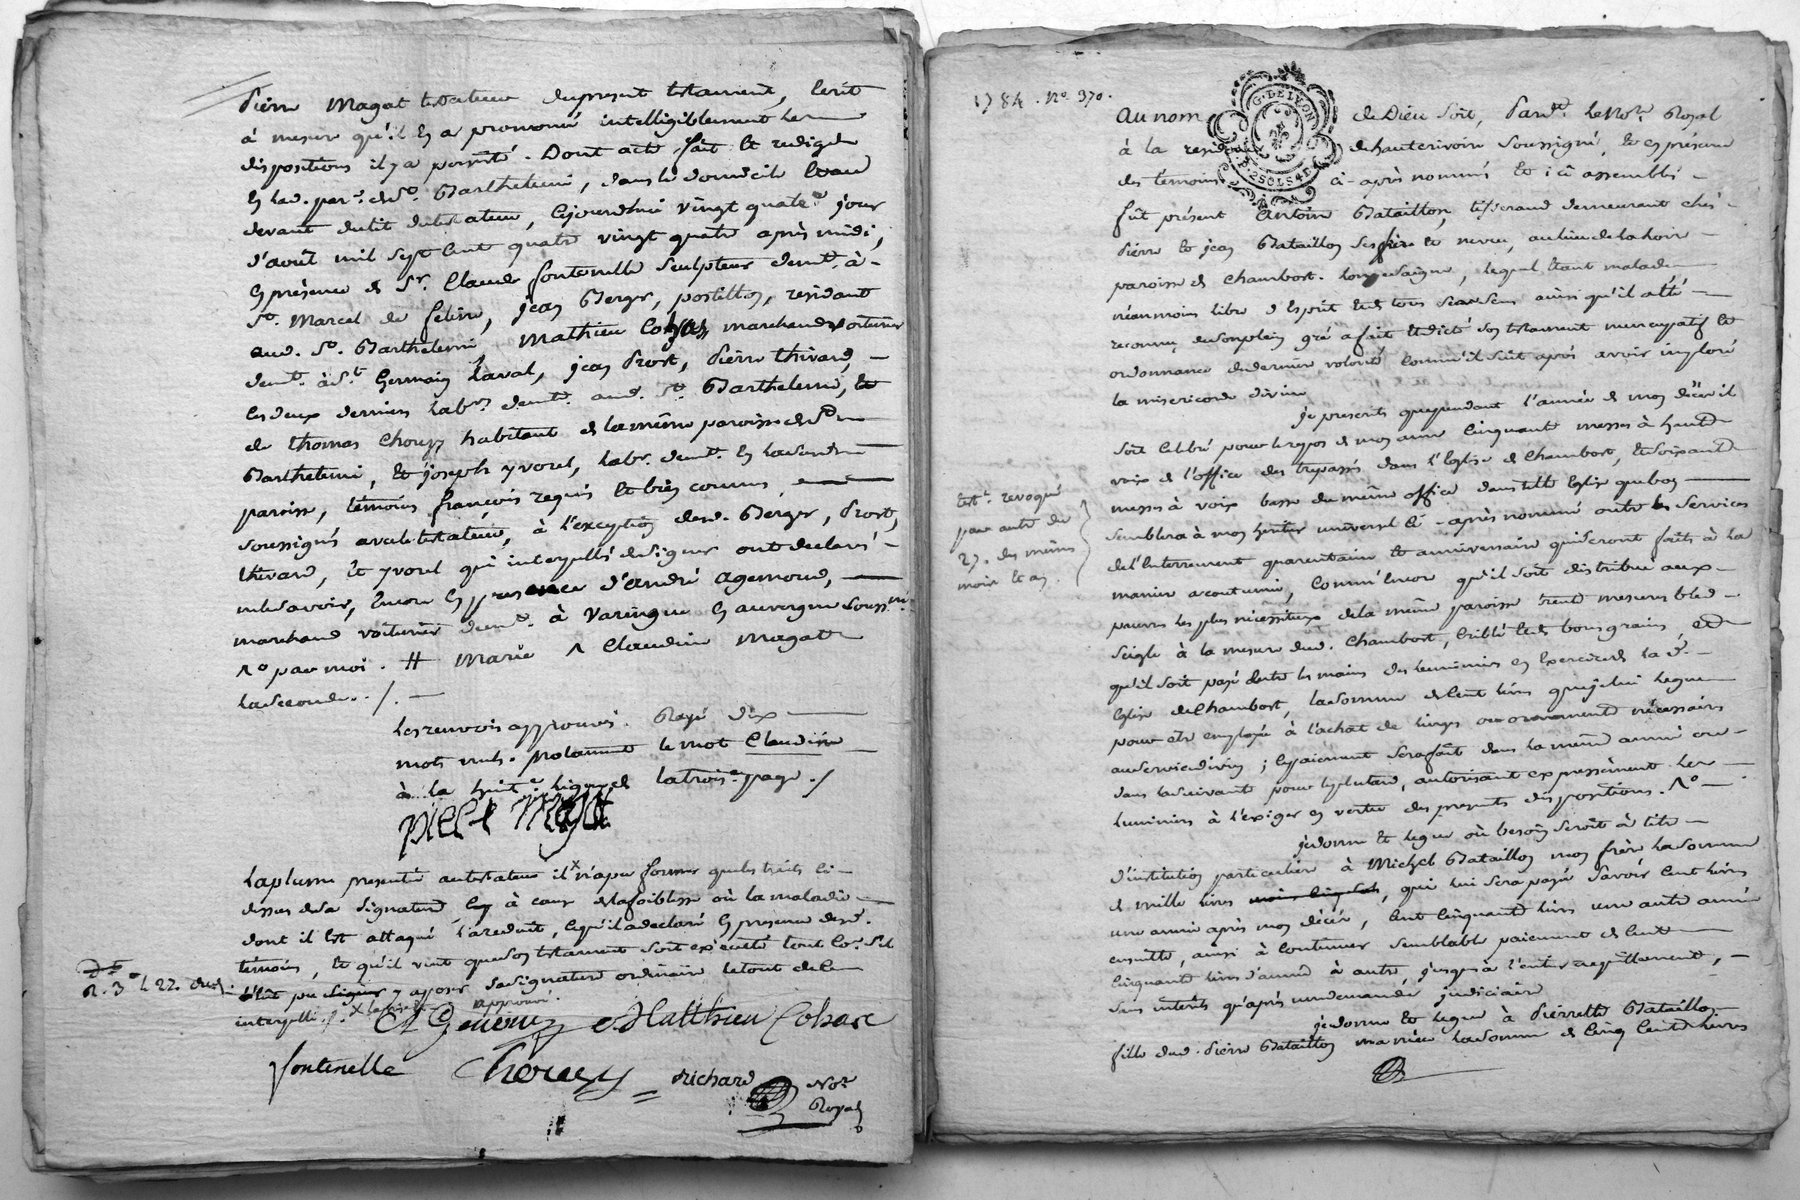 Pierre Magat testateur du present testament, l'ecrit
à mesure qu'il en a prononcé intelligiblement les
dispositions il y a persisté. Dont acte fait et redigé
en lad. par.e de St. Barthelemi, dans le domicile et au
devant dudit testateur, cejourdhui vingt quatre jour
d'août mil sept cent quatre vingt quatre après midi,
en présence de Sr. Claude fontenelle sculpteur demt. à
St. Marcel de feline, jean Berger, postillon, residant
aud. St. Barthelemi Mathieu Cohas marchand voiturier
demt. à St. Germain Laval, jean Prost, Pierre thivard,
les deux derniers labrs. demt. aud. St. Barthelemi, et
de thomas Chouzy habitant de la même paroisse de St.
Barthelemi, et joseph yvorel, labr. demt. en la susd.
paroisse, témoins françois requis et bien connus,
soussignés avec le testateur, à l'exception desd. Berger, Prost,
thivard, et yvorel qui interpellés de signer ont declaré
ne le savoir, encore en presence d'andré agemoud,
marchand voiturier demt. à Varingue en auvergne soussigné
par moi. # Marie Claudine Magat
la seconde. /.
Les renvois approuvés. Rayé dix
mots nuls. notamment le mot Claudine
à la huite. ligne de la troise. page. /
piere Magat
La plume presentée au testateur il n'a pu former que les traits ci
dessus de sa signature à cause de la foiblesse où la maladie
dont il est attaqué l'a reduit, ce qu'il a declaré en presence desd.
témoins, et qu'il veut que son testament soit exécuté tout co. s'il
eût pu y apposer sa signature ordinaire le tout de ce
interpellé. approuvé.
Mathieu Cohas
fontenelle Chouzy Richard Nore.
Royal
R. 3 le 22
1784. No. 370.
G. DE LYON
2 SOLS 4 D
Au nom de Dieu soit, Pardt. le Nore. Royal
à la residence de hauterivoire soussigné, et en présence
des temoins ci-après nommés et ici assemblés
fût présent Antoine Bataillon, tisserand demeurant chés
Pierre et jean Bataillon ses frère et neveu, au lieu de la
paroisse de Chambost. Longessaigne, lequel étant malade
néanmoins libre d'esprit et de tous ses sens ainsi qu'il a été
reconnu, de son plein gré a fait et dicté son testament nuncupatif et
ordonnance de derniere volonté comm'il suit après avoir imploré
la misericorde divine
je prescrits que pendant l'année de mon décès il
soit célébré pour le repos de mon ame cinquante messes à haute
voix de l'office des trepassés dans l'Eglise de Chambost, et soixante
messes à voix basse du même office dans telle Eglise que bon
semblera à mon heritier universel ci-après nommé outre les services
de l'enterrement quarantaine et anniversaire qui seront faits à la
maniere acoutumée, comm'encore qu'il soit distribué aux
pauvres les plus nécessiteux de la même paroisse trente mesures bled
seigle à la mesure dud. Chambost, criblé et de bons grains, et
qu'il soit payé entre les mains des luminiers en exercice de lad.
Eglise de Chambost, la somme de cent livres que je lui legue
pour etre employée à l'achat de linges ou ornements nécessaires
au service divin; le paiement sera fait dans la même année ou
dans la suivante pour le plus tard, autorisant expressément les
luminiers à l'exiger en vertu des presentes dispositions.
je donne et legue où besoin seroit à titre
d'institution particuliere à Michel Bataillon mon frère la somme
de mille livres, qui lui sera payée savoir cent livres
une année après mon décès, cent cinquante livres une autre année
ensuite, ainsi à continuer semblable paiement de cent
cinquante livres d'année à autre, jusques à l'entier acquittement,
sans interêts qu'après une demande judiciaire
je donne et legue à Pierrette Bataillon
fille dud. Pierre Bataillon ma niéce la somme de cinq cents livres
test. revoqué
par autre du
27. des mêmes
mois et an.